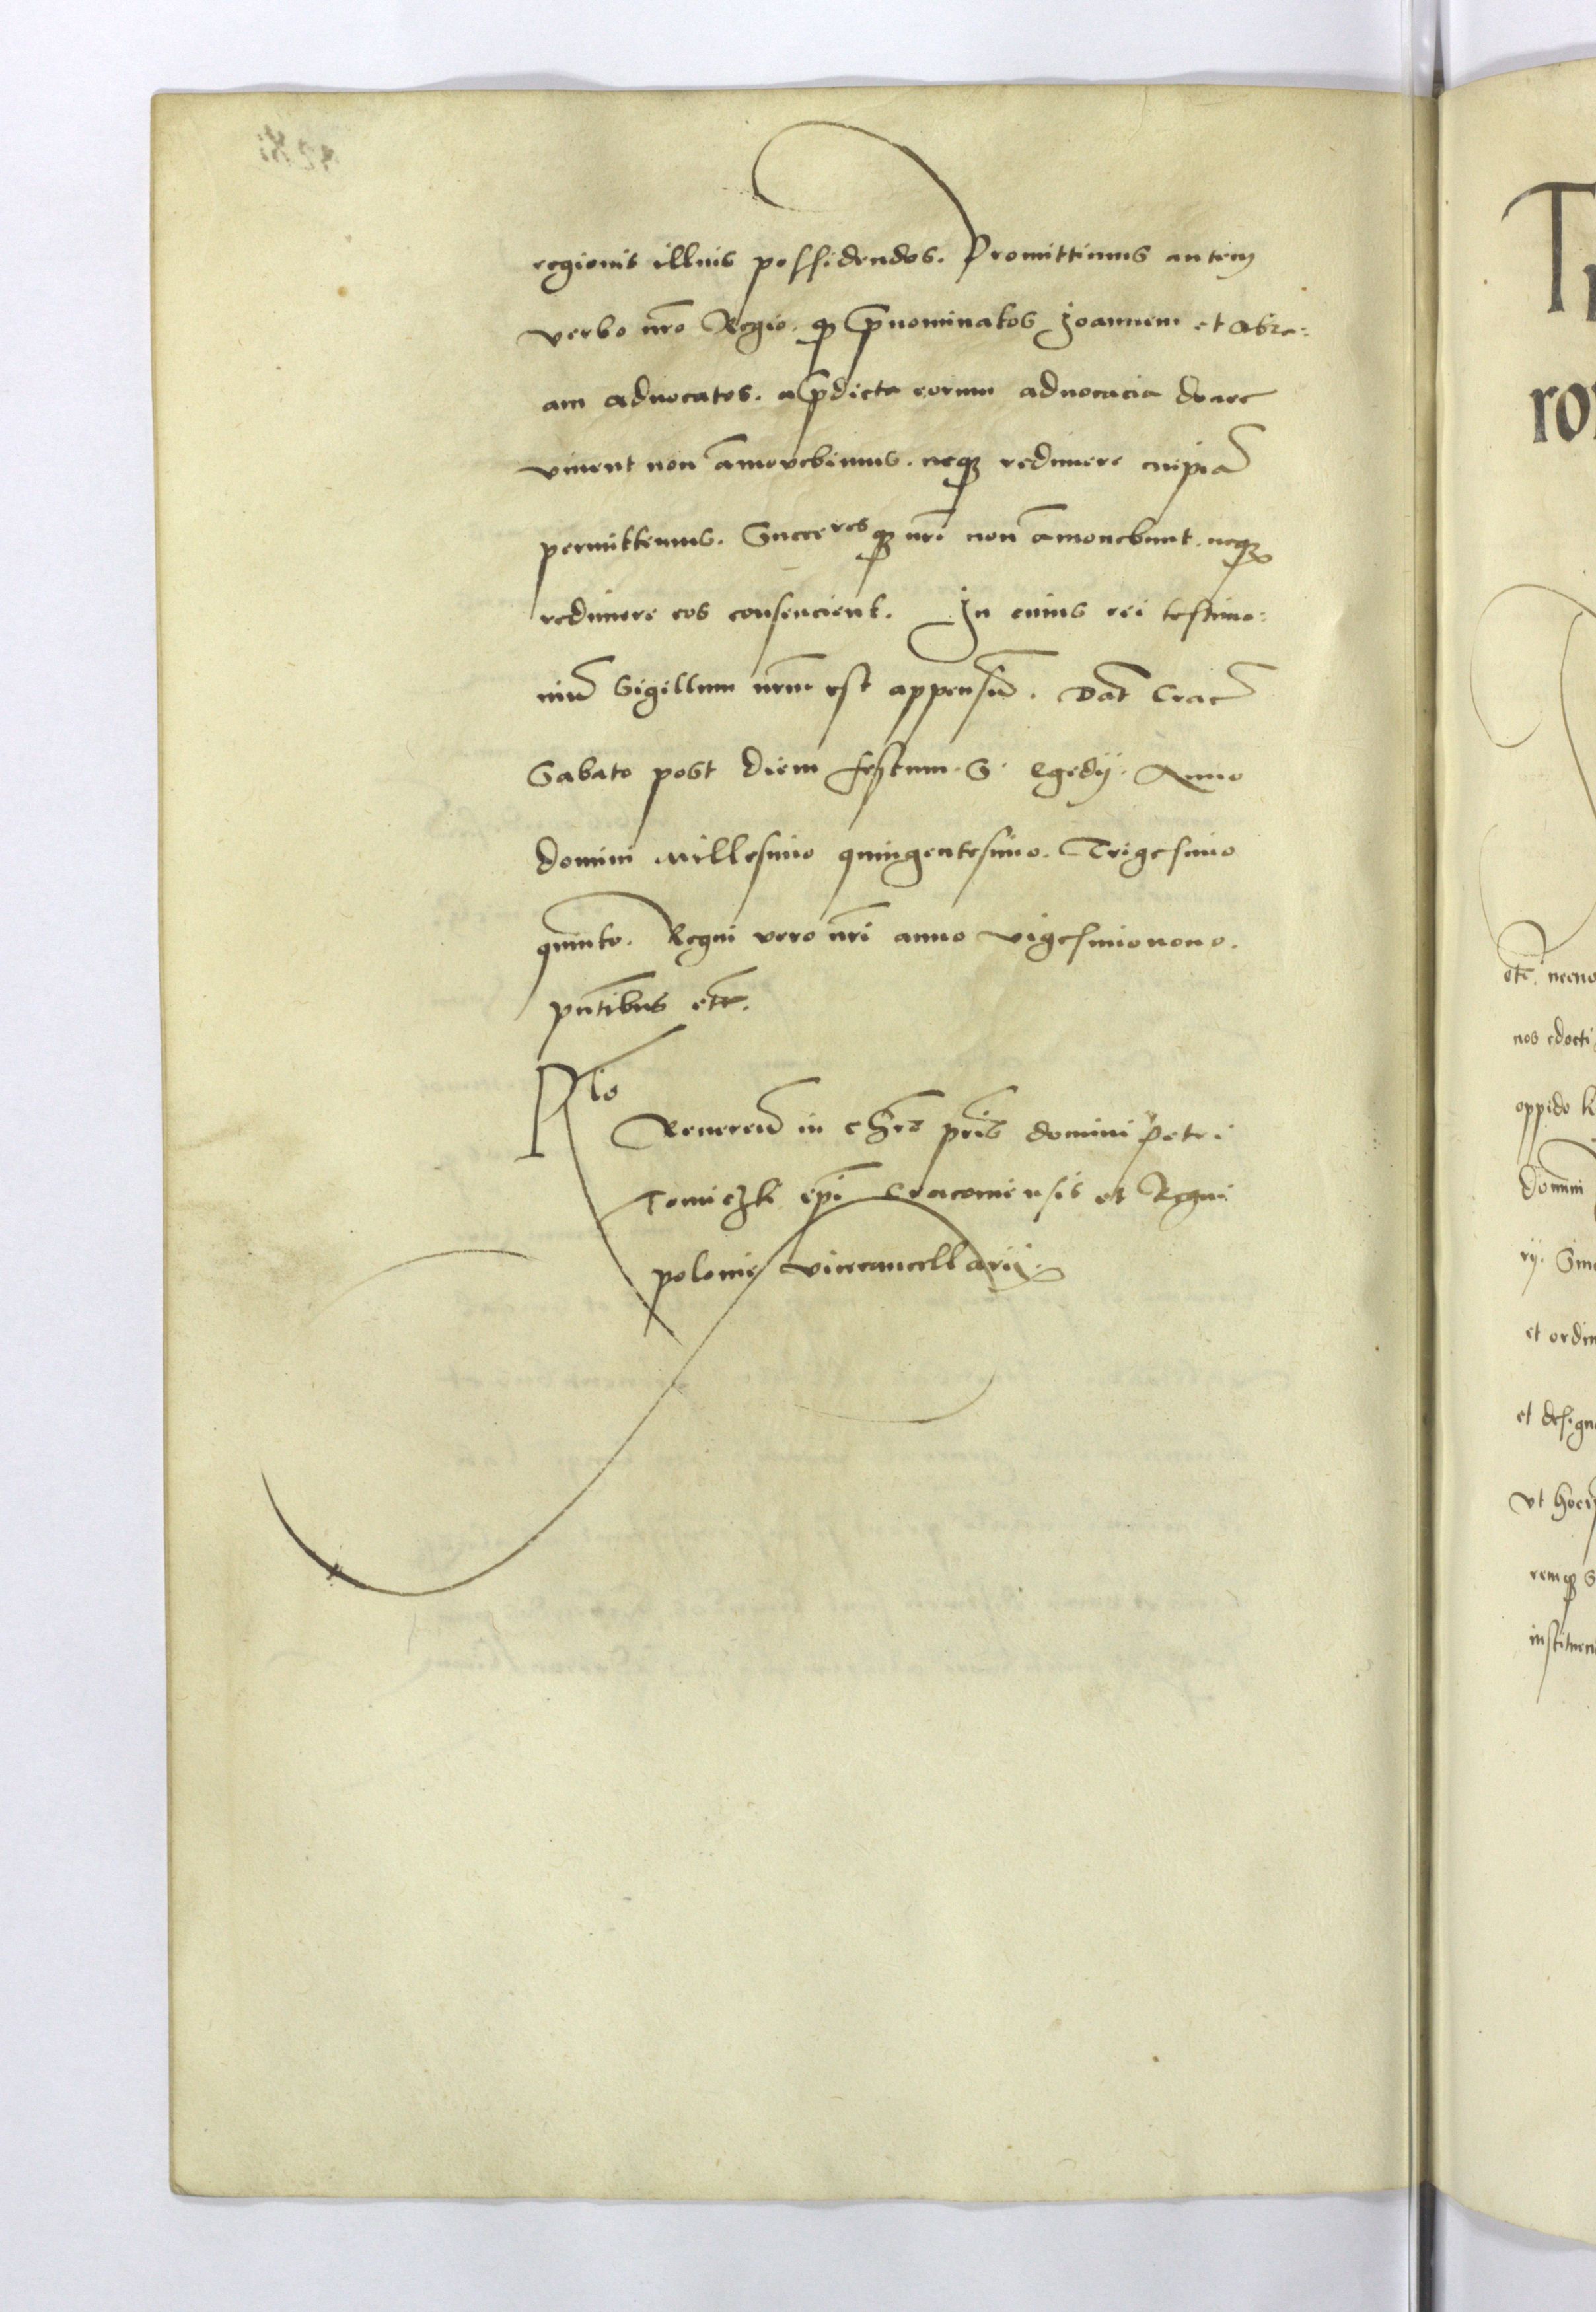 regionis illius possidendos. Promittimus autem
verbo nr̃o Regio. qp̃ p̃nominatos Joannem et Abra:
am advocatos. a p̃dicta eorum advocacia donec
vivent non amovebimus. neqꝫ redimere cuipiã
permittemus. Succeresqꝫ nr̃i non amovebunt. neqꝫ
redimere eos consencient. In cuius rei testimo:
niũ Sigillum nr̃m est appensũ. Dat̃ Crac̃
Sabato post diem festum. S. Egedij. Anno
domini Millesimo quingentesimo. Trigesimo
quinto. Regni vero nr̃i anno vigesimonono.
pñtibus etc̃.
Rlo
Reverenũ in chr̃o pr̃is domini Petri
Tomiczki ep̃i Cracoviensis et Regni
polonie vicecancellarij.
etc̃. necno
nos edocti
oppido k
domini
rij. Sm
et ordin
et design
vt
remqꝫ s
instituen